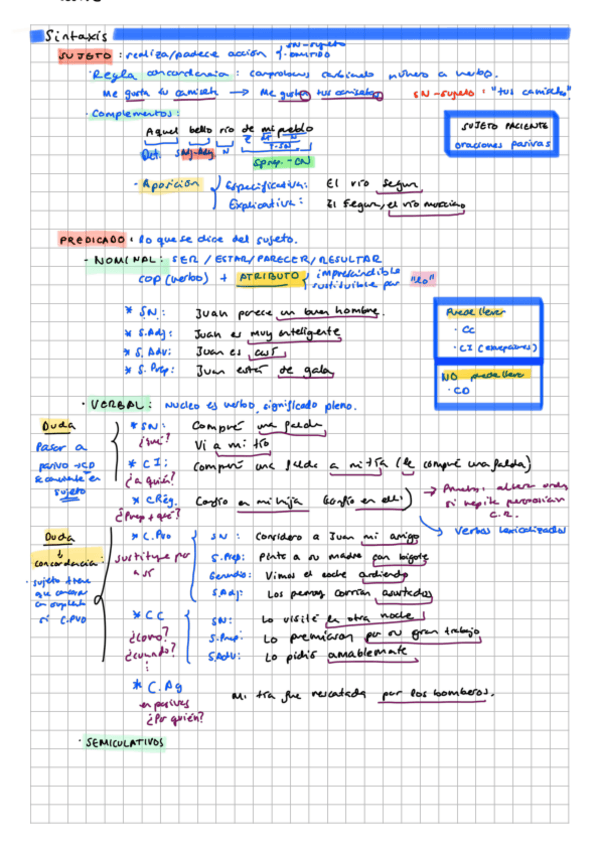 Sintaxis
SUJETO : realiza/padece acción
SN-sujeto
OMITIDO
· Regla concordancia : comprobamos cambiando número a verbo.
Me gusta tu camiseta → Me gustan tus camisetas SN-sujeto : "tus camisetas"
· Complementos:
Aquel bello río de mi pueblo
Det. SAdj-Ady N E Dt N
T-SN
Sprep.-CN
SUJETO PACIENTE
oraciones pasivas
· Aposición
Especificativa: El río Segura
Explicativa: El Segura, el río murciano
PREDICADO : lo que se dice del sujeto.
- NOMINAL: SER / ESTAR / PARECER / RESULTAR
COP (verbo) + ATRIBUTO
imprescindible
sustituible por "lo"
* SN: Juan parece un buen hombre.
* S.Adj: Juan es muy inteligente
* S. Adv: Juan es así
* S. Prep: Juan está de gala
Puede llevar
· CC
· CI (excepciones)
NO puede llevar
· CD
· VERBAL: Nucleo es verbo, significado pleno.
Duda
Pasar a
pasivo → CD
se convierte en
sujeto
* SN: Compré una falda
¿qué? Vi a mi tío
* CI: Compré una falda a mi tía (le compré una falda)
¿a quién?
* CRég. Confío en mi hija (confío en ella)
¿Prep + qué?
→ Prueba: alterar orden
si repite pronombre
C.I.
Verbos lexicalizados
Duda
concordancia:
· sujeto tiene
que concordar
si C.PVO
* C.Pvo
sustituye por
así
SN: Considero a Juan mi amigo
S.Prep: Pinté a su madre con bigote
Gerundio: Vimos el coche ardiendo
S.Adj: Los perros corrían asustados
* CC
¿cómo?
¿cuándo?
⋮
SN: Lo visité la otra noche
S.Prep: Lo premiaron por su gran trabajo
S.Adv: Lo pidió amablemente
* C. Ag
en pasivas
¿Por quién?
Mi tía fue rescatada por los bomberos.
· SEMICULATIVOS